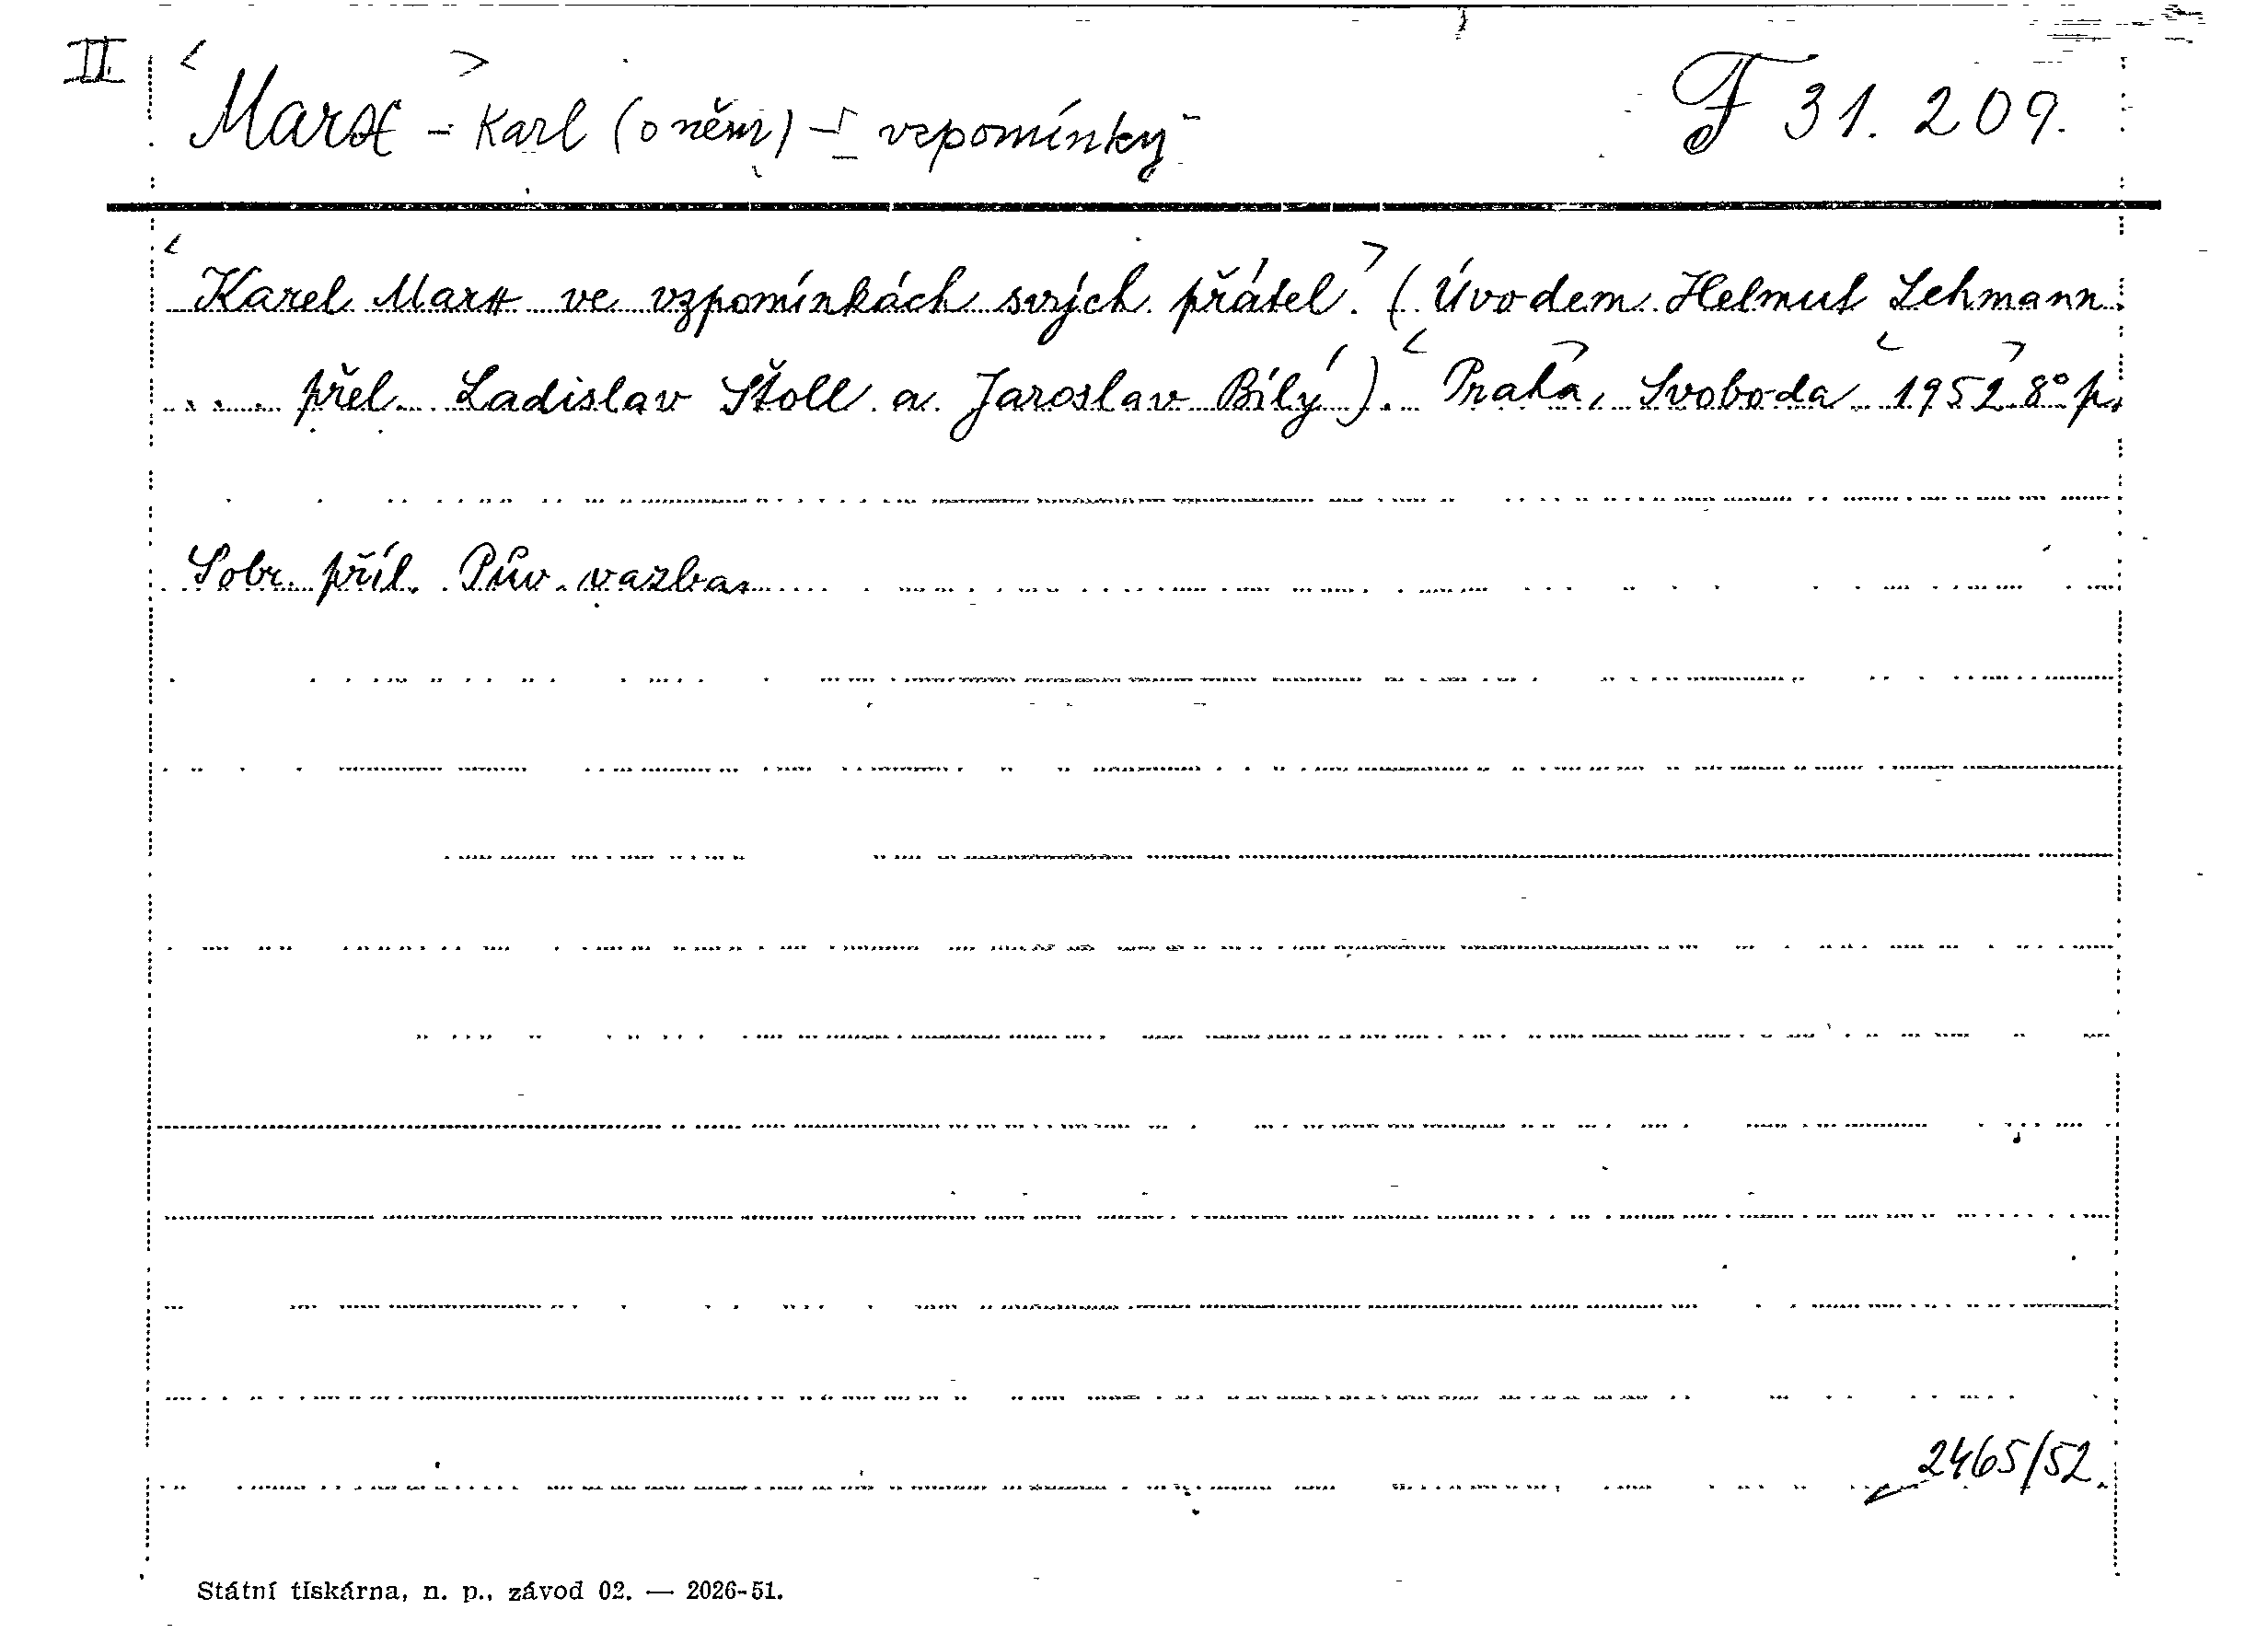 II
Marx - Karl (o něm) - vzpomínky F 31.209.
Karel Marx ve vzpomínkách svých přátel. (Úvodem Helmut Lehmann
.... přel. Ladislav Štoll a Jaroslav Bílý). Praha, Svoboda 1952 8° p.
Sobr. příl. Pův. vazba.
2465/52.
Státní tiskárna, n. p., závod 02. — 2026-51.